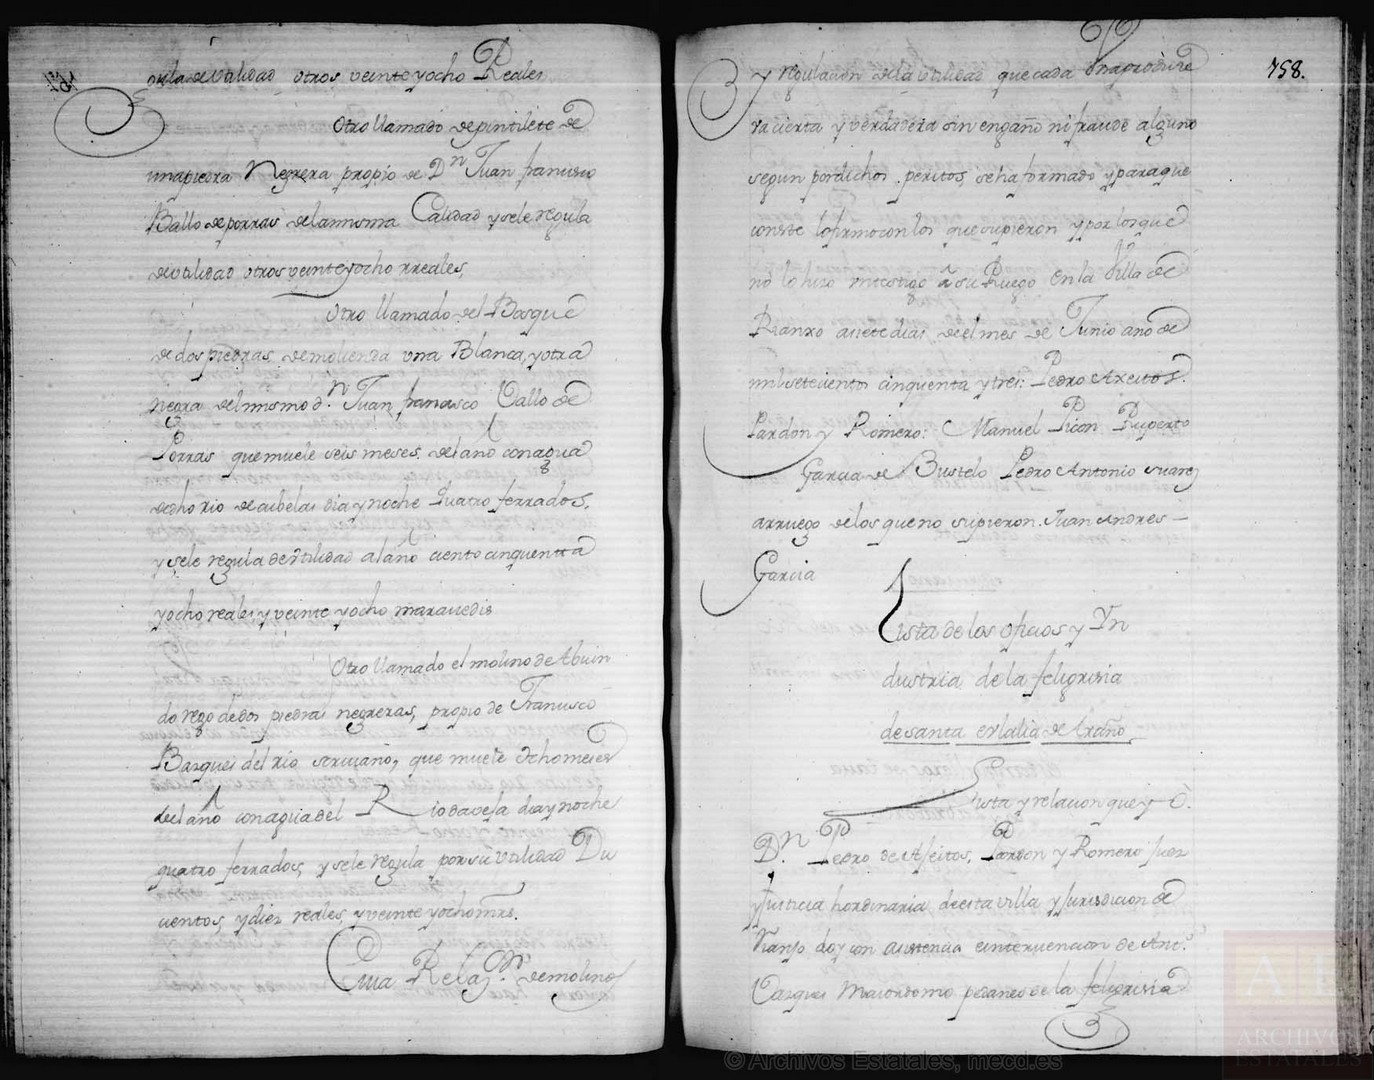 gula de utilidad otros veinte y ocho Reales
Otro llamado de pintilete de
una piedra Negrera propio de Dn Juan francisco
Ballo de porras de la misma Calidad y se le regula
de utilidad otros veinte y ocho rreales,
Otro llamado de el Bosque
de dos piedras, de molienda una Blanca, y otra
negra del mismo dn. Juan francisco Vallo de
Porras que muele seis meses, del año con agua
de dho rio de de dia y noche quatro ferrados,
y se le regula de utilidad al año ciento cinquentta
y ocho reales y veinte y ocho maravedis
Otro llamado el molino de Abuin
do rego de dos piedras negreras, propio de Francisco
Bazques del rio scrivano, que muele ocho meses
del año con agua del Rio da vesa dia y noche
quatro ferrados, y se le regula por su utilidad Du
cientos, y diez reales, y veinte y ocho mrs.
Cuia Relazn. de molinos
758.
y regulacion de la utilidad que cada Una produce
va cierta y verdadera sin engaño ni fraude alguno
segun por dichos peritos, se ha formado y para que
conste lo firmo con los que supieron y por los que
no lo hizo un testigo a su Ruego en la Villa de
Rianxo a siete dias, de el mes de Junio año de
mil setecientos cinquenta y tres: Pedro Axeitos.
Pardon y Romero: Manuel Picon Ruperto
Garcia de Bustelo Pedro Antonio suarez
arruego de los que no supieron. Juan Andres –
Garcia
Lista de los oficios y Yn
dustria de la feligrisia
de santa erlalia de Araño
Lista y relacion que yo
Dn. Pedro de Ajeitos, Pardon y Romero Juez
y Justicia hordinaria de esta villa y Jurisdicion de
Rianjo doy con asistencia e intervencion de Antº.
Vazques Maiordomo pedaneo de la feligrisia
© Archivos Estatales, mecd.es
AE
ARCHIVOS
ESTATALES